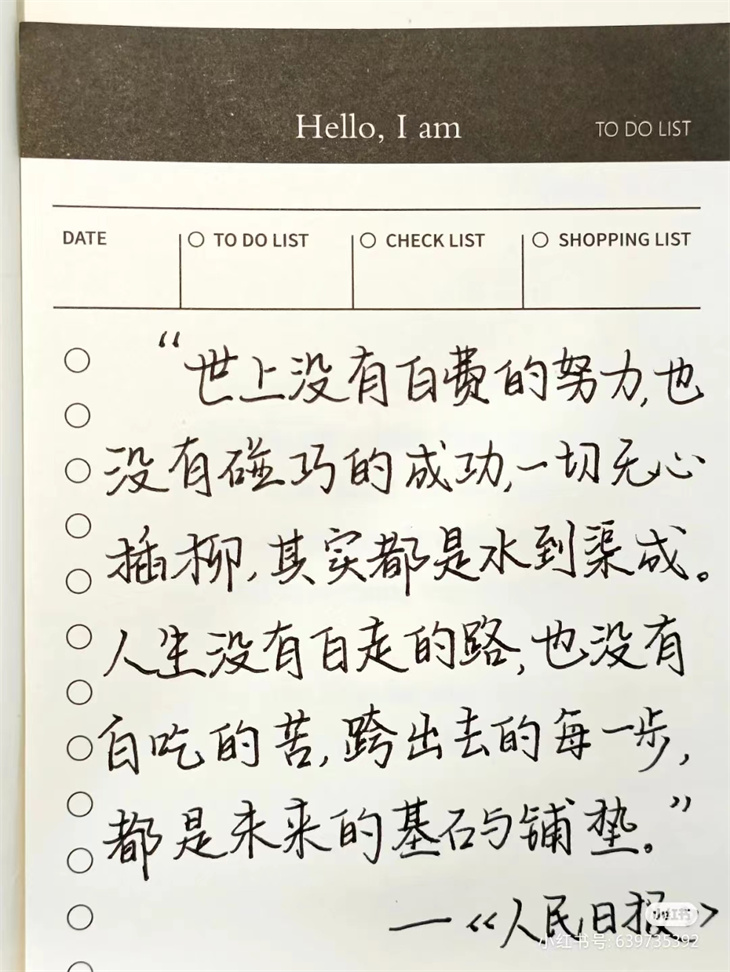 Hello, I am
TO DO LIST
DATE
TO DO LIST
CHECK LIST
SHOPPING LIST
“世上没有白费的努力,也
没有碰巧的成功,一切无心
插柳,其实都是水到渠成。
人生没有白走的路,也没有
白吃的苦,跨出去的每一步,
都是未来的基石与铺垫。”
—《人民日报》
小红书
小红书号: 639735392